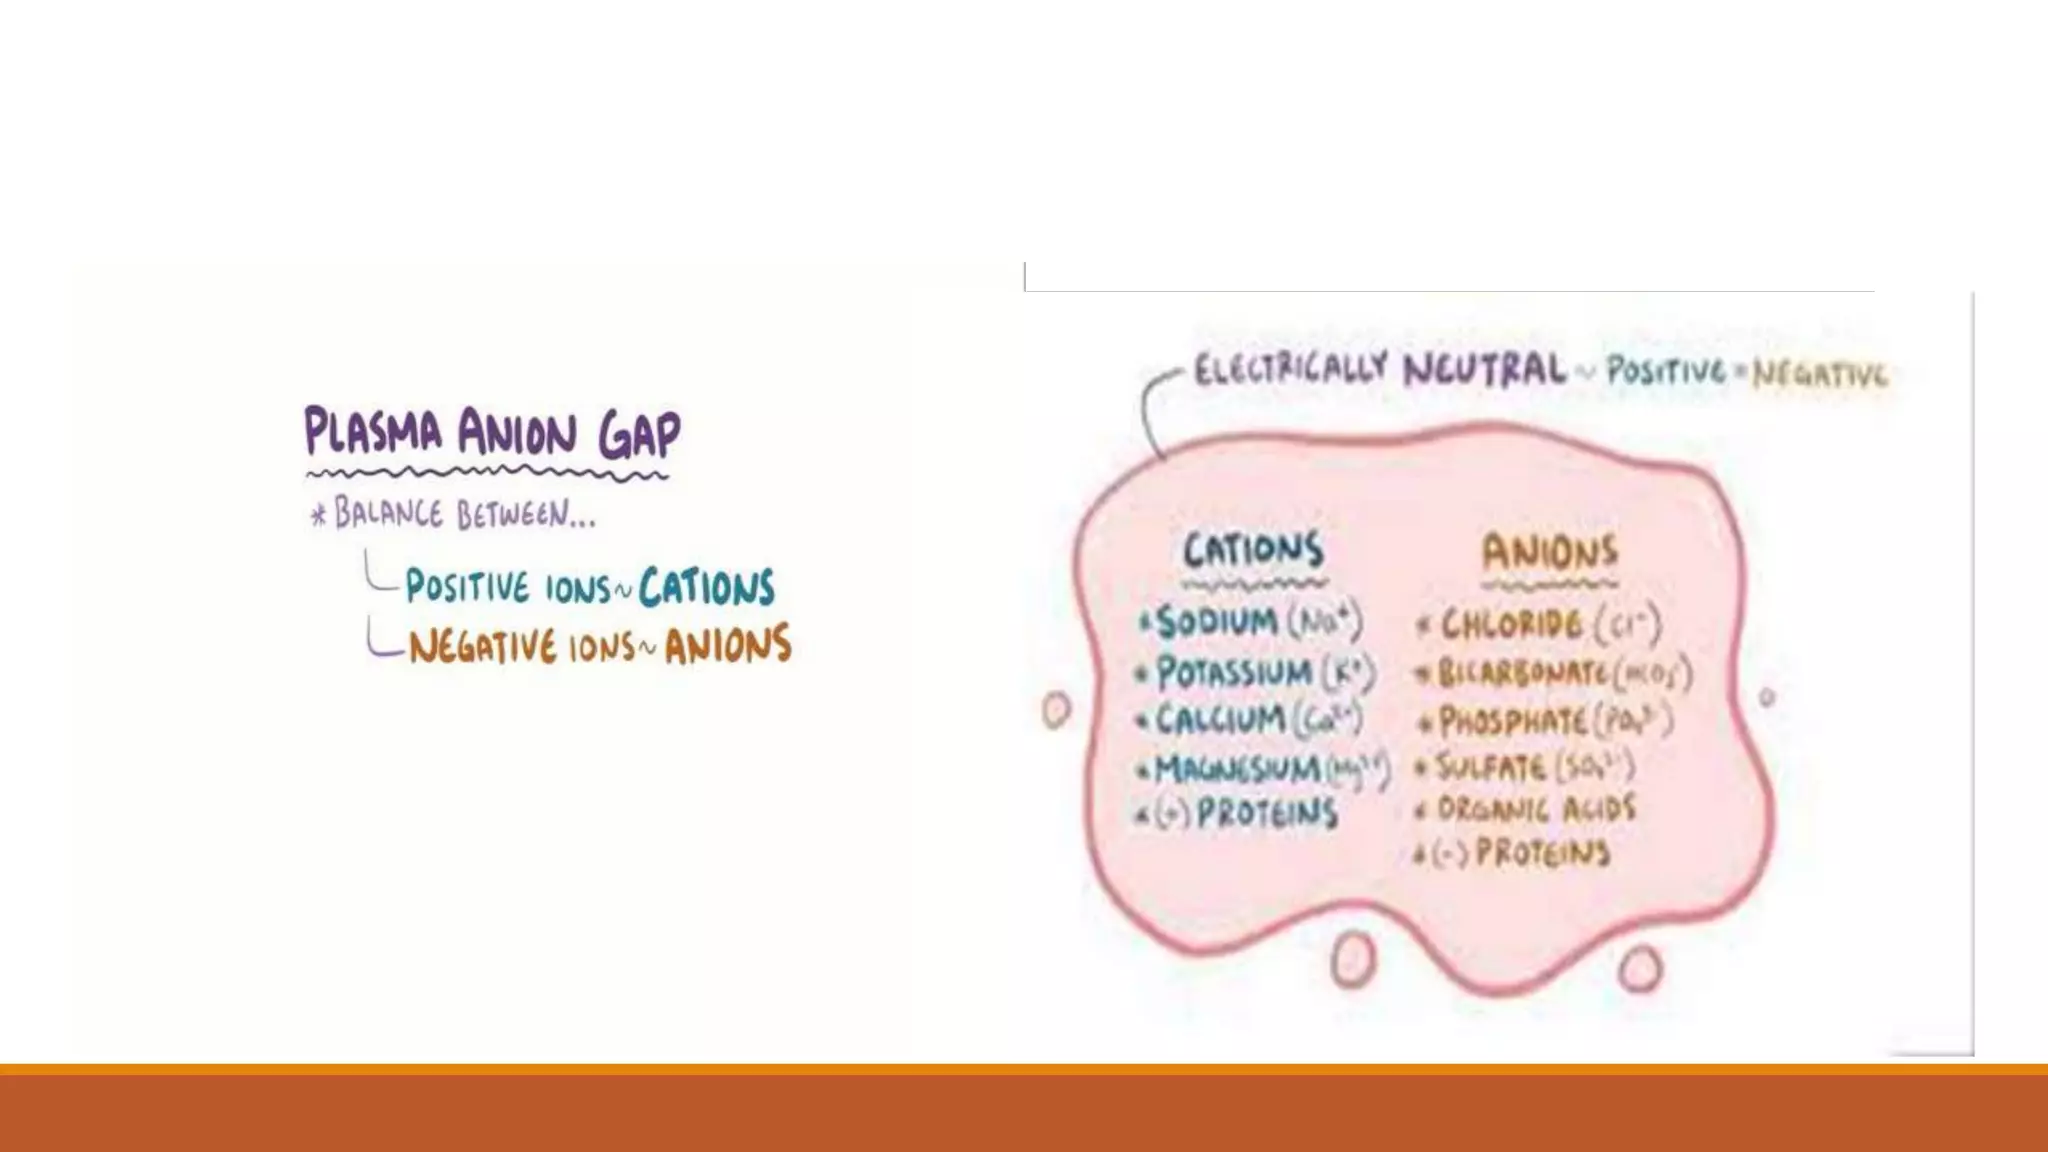 PLASMA ANION GAP
* BALANCE BETWEEN...
POSITIVE IONS ~ CATIONS
NEGATIVE IONS ~ ANIONS
ELECTRICALLY NEUTRAL ~ POSITIVE = NEGATIVE
CATIONS
* SODIUM (Na⁺)
* POTASSIUM (K⁺)
* CALCIUM (Ca²⁺)
* MAGNESIUM (Mg²⁺)
* (+) PROTEINS
ANIONS
* CHLORIDE (Cl⁻)
* BICARBONATE (HCO₃⁻)
* PHOSPHATE (PO₄³⁻)
* SULFATE (SO₄²⁻)
* ORGANIC ACIDS
* (-) PROTEINS